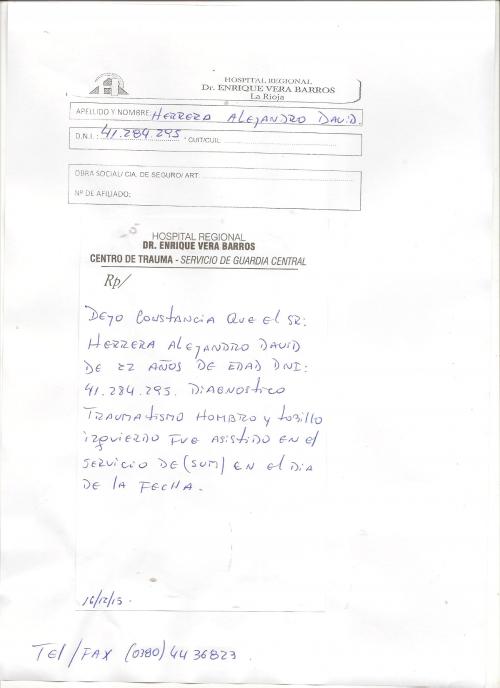 HOSPITAL REGIONAL
Dr. ENRIQUE VERA BARROS
La Rioja
APELLIDO Y NOMBRE: HERRERA ALEJANDRO DAVID.
D.N.I.: 41.284.295 CUIT/CUIL:
OBRA SOCIAL/ CIA. DE SEGURO/ ART:
Nº DE AFILIADO:
HOSPITAL REGIONAL
DR. ENRIQUE VERA BARROS
CENTRO DE TRAUMA - SERVICIO DE GUARDIA CENTRAL
Rp/
DEJO CONSTANCIA QUE El SR:
HERRERA AlEJANDRO DAVID
DE 22 AÑOS DE EDAD DNI:
41.284.295. DIAGNOSTICO
TRAUMATISMO HOMBRO y tobillo
izquierdo FUE ASISTIDO EN el
SERVICIO DE (SUM) EN el DIA
DE la FECHA.
16/12/15.
TEl/FAX (0380) 44 36823